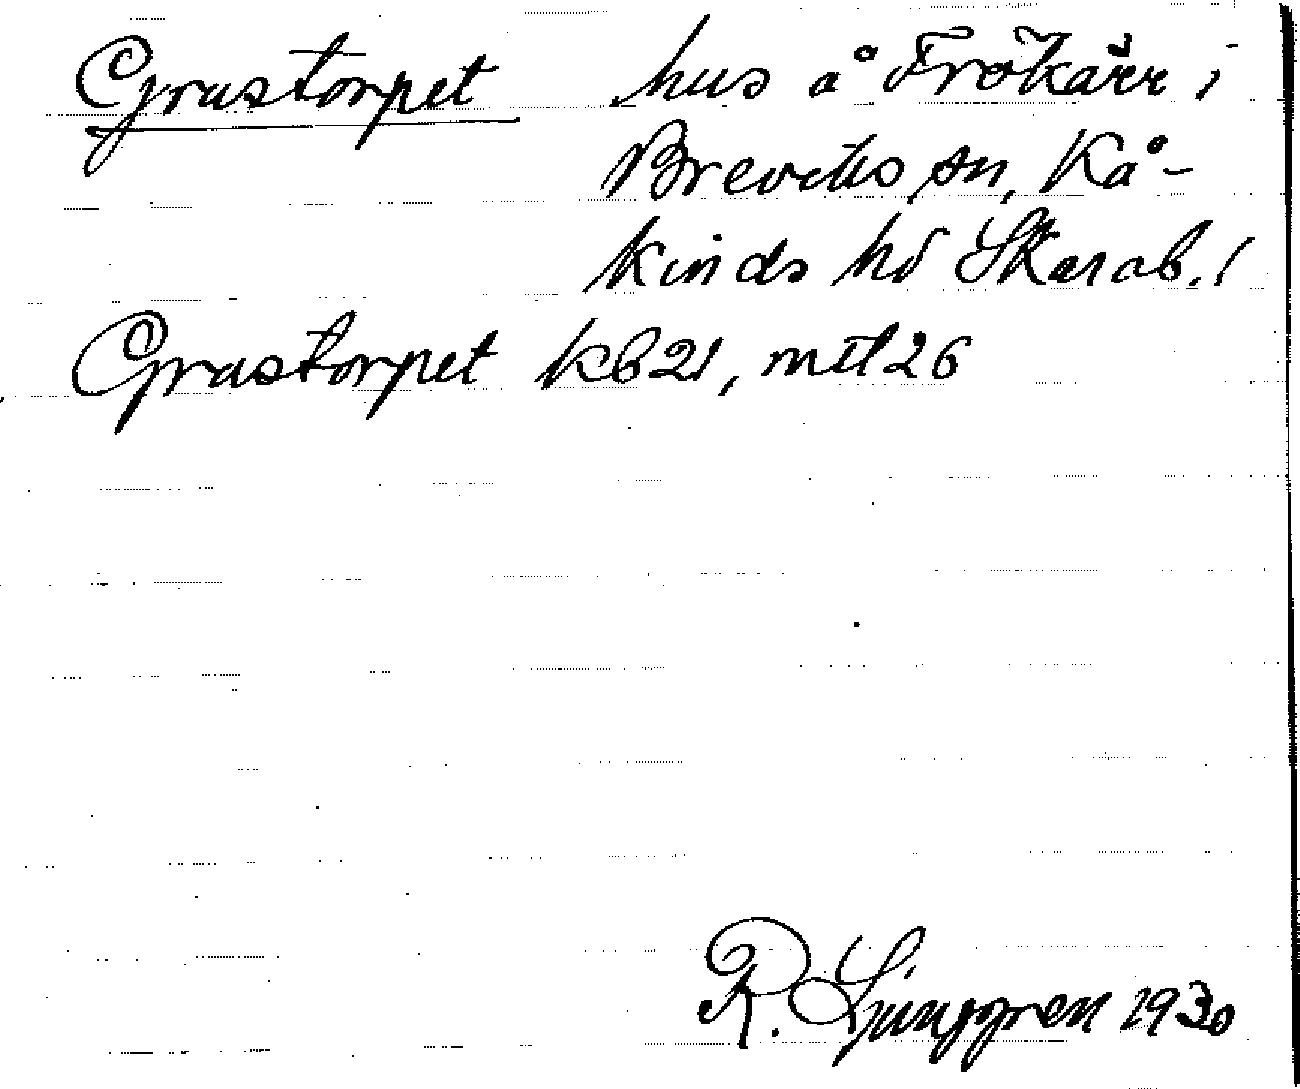 Grastorpet hus å Frökärr i
Breviks sn, Kå-
kinds hd Skarab. l
Grastorpet kb 21, mtl 26
R. Ljunggren 1930